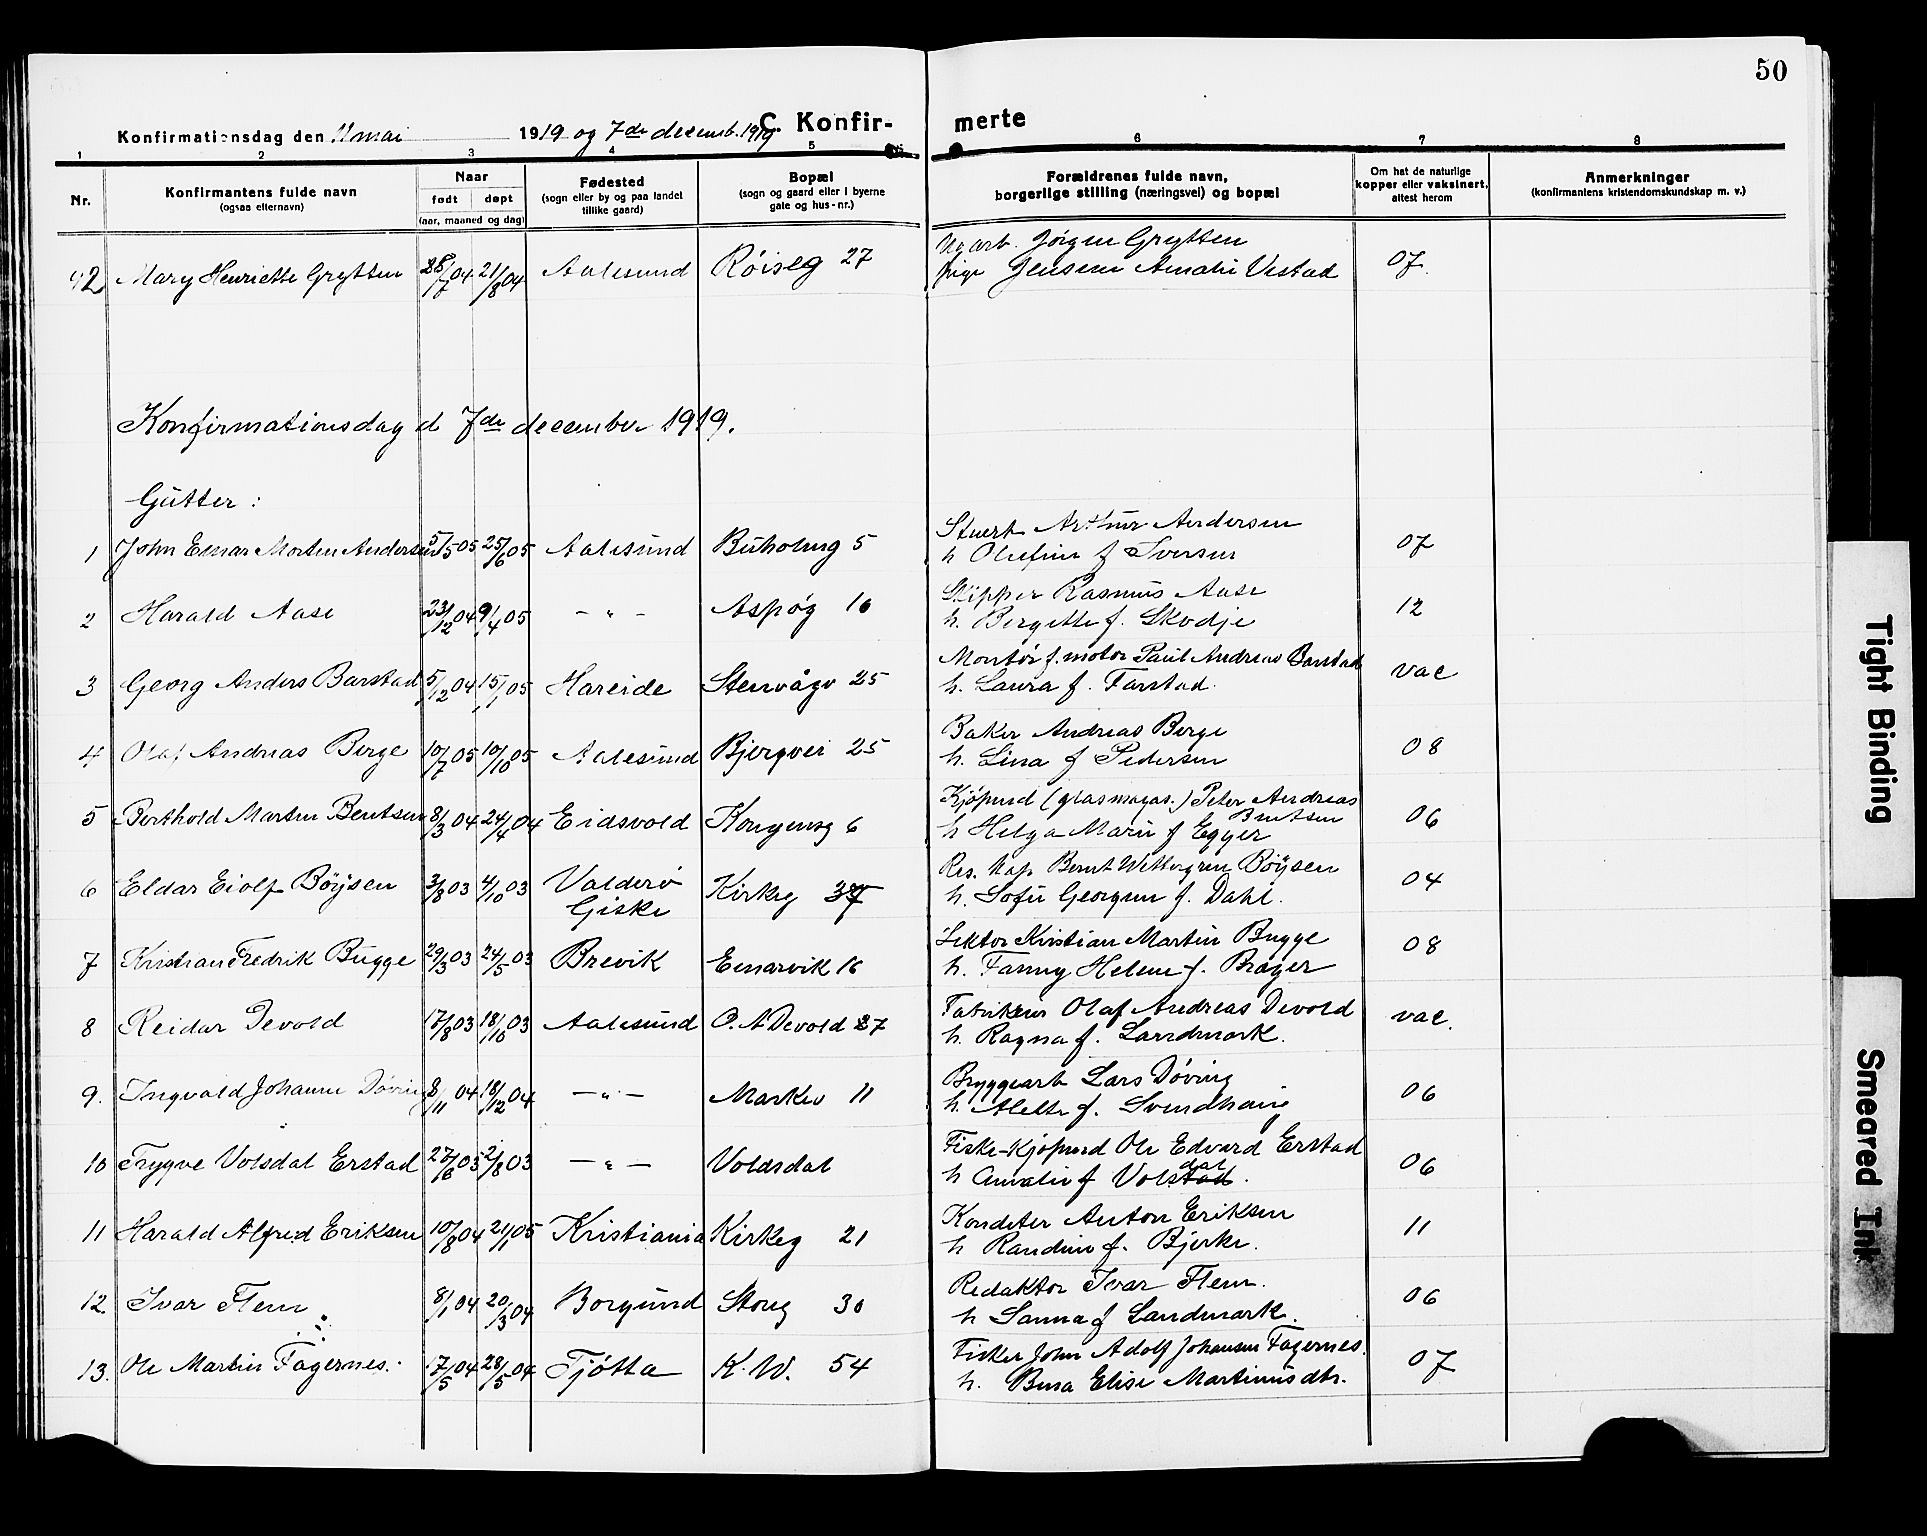 50
C. Konfir- merte
Konfirmationsdag den 11 mai 1919 og 7de decemb. 1919
1 2 3 4 5 6 7 8
Nr. Konfirmantens fulde navn (ogsaa efternavn) Naar født døpt (aar, maaned og dag) Fødested (sogn eller by og paa landet tillike gaard) Bopæl (sogn og gaard eller i byerne gate og hus-nr.) Forældrenes fulde navn, borgerlige stilling (næringsvei) og bopæl Om hat de naturlige kopper eller vaksinert, attest herom Anmerkninger (konfirmantens kristendomskundskap m. v.)
42 Mary Henriette Grytten 28/7 04 21/8 04 Aalesund Røiseg 27 Jørgen Grytten
Jensine Amalie Vestad 07.
Konfirmationsdag d 7de december 1919.
Gutter:
1 John Einar Morten Andersen 5/5 05 25/6 05 Aalesund Buholmg 5 Stuert Arthur Andersen
h Olufine f Iversen 07
2 Harald Aase 23/12 04 9/4 05 - " - Aspøg 10 Skipper Rasmus Aase
h. Bergitte f. Skodje 12
3 Georg Anders Barstad 5/12 04 15/1 05 Hareide Stenvågv 25 Montør f. motor Paul Andreas Barstad
h. Laura f. Farstad. vac
4 Olaf Andreas Berge 10/7 05 10/10 05 Aalesund Bjergvei 25 Baker Andreas Berge
h. Lina f Pedersen 08
5 Berthold Martin Bentsen 8/3 04 24/4 04 Eidsvold Kongensg 6 Kjøpmd (glasmagas.) Peter Andreas Bentsen
h Helga Marie f Egger 06
6 Eldar Eiolf Böÿsen 3/8 03 4/10 03 Valderø
Giske Kirkeg Res. Kap. Bernt Wettergren Böÿsen
h. Sofie Georgine f. Dahl. 04
7 Kristian Fredrik Bugge 29/3 03 24/5 03 Brevik Einarvik 16 Lektor Kristian Martin Bugge
h. Fanny Helene f. Brager 08
8 Reidar Devold 17/8 03 18/10 03 Aalesund O. A Devold 27 Fabrikeier Olaf Andreas Devold
h. Ragna f. Landmark. vac.
9. Ingvald Johanne Døving 8/11 04 18/12 04 - " - Markev 11 Bryggearb Lars Døving
h. Alette f. Svendhaug 06
10 Trygve Volsdal Erstad 27/6 03 2/8 03 - " - Voldsdal Fiske-Kjøpmd Ole Edvard Erstad
h Amalie f Volstad dal. 06
11 Harald Alfred Eriksen 10/8 04 21/1 05 Kristiania Kirkeg 21 Konditer Anton Eriksen
h Randine f. Bjerke. 11
12. Ivar Flem 8/1 04 20/3 04 Borgund Storg 30 Redaktør Ivar Flem.
h Sanna f Landmark. 06
13. Ole Martin Fagernes. 17/5 04 28/5 04 Tjøtta K. W. 54 Fisker John Adolf Johansen Fagernes.
h. Bina Elise Martinusdtr. 07
Tight Binding
Smeared Ink